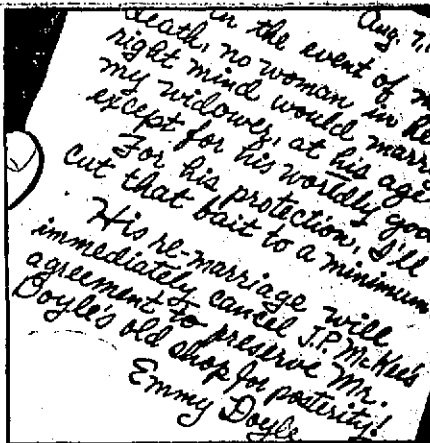 Aug. 7,
in the event of m
death, no woman in he
right mind would marr
my widower, at his age
except for his worldly goo
For his protection, I'll
cut that bait to a minimum
His re-marriage will
immediately cancel J.P. McKee's
agreement to preserve Mr.
Doyle's old shop for posterity!
Emmy Doyle